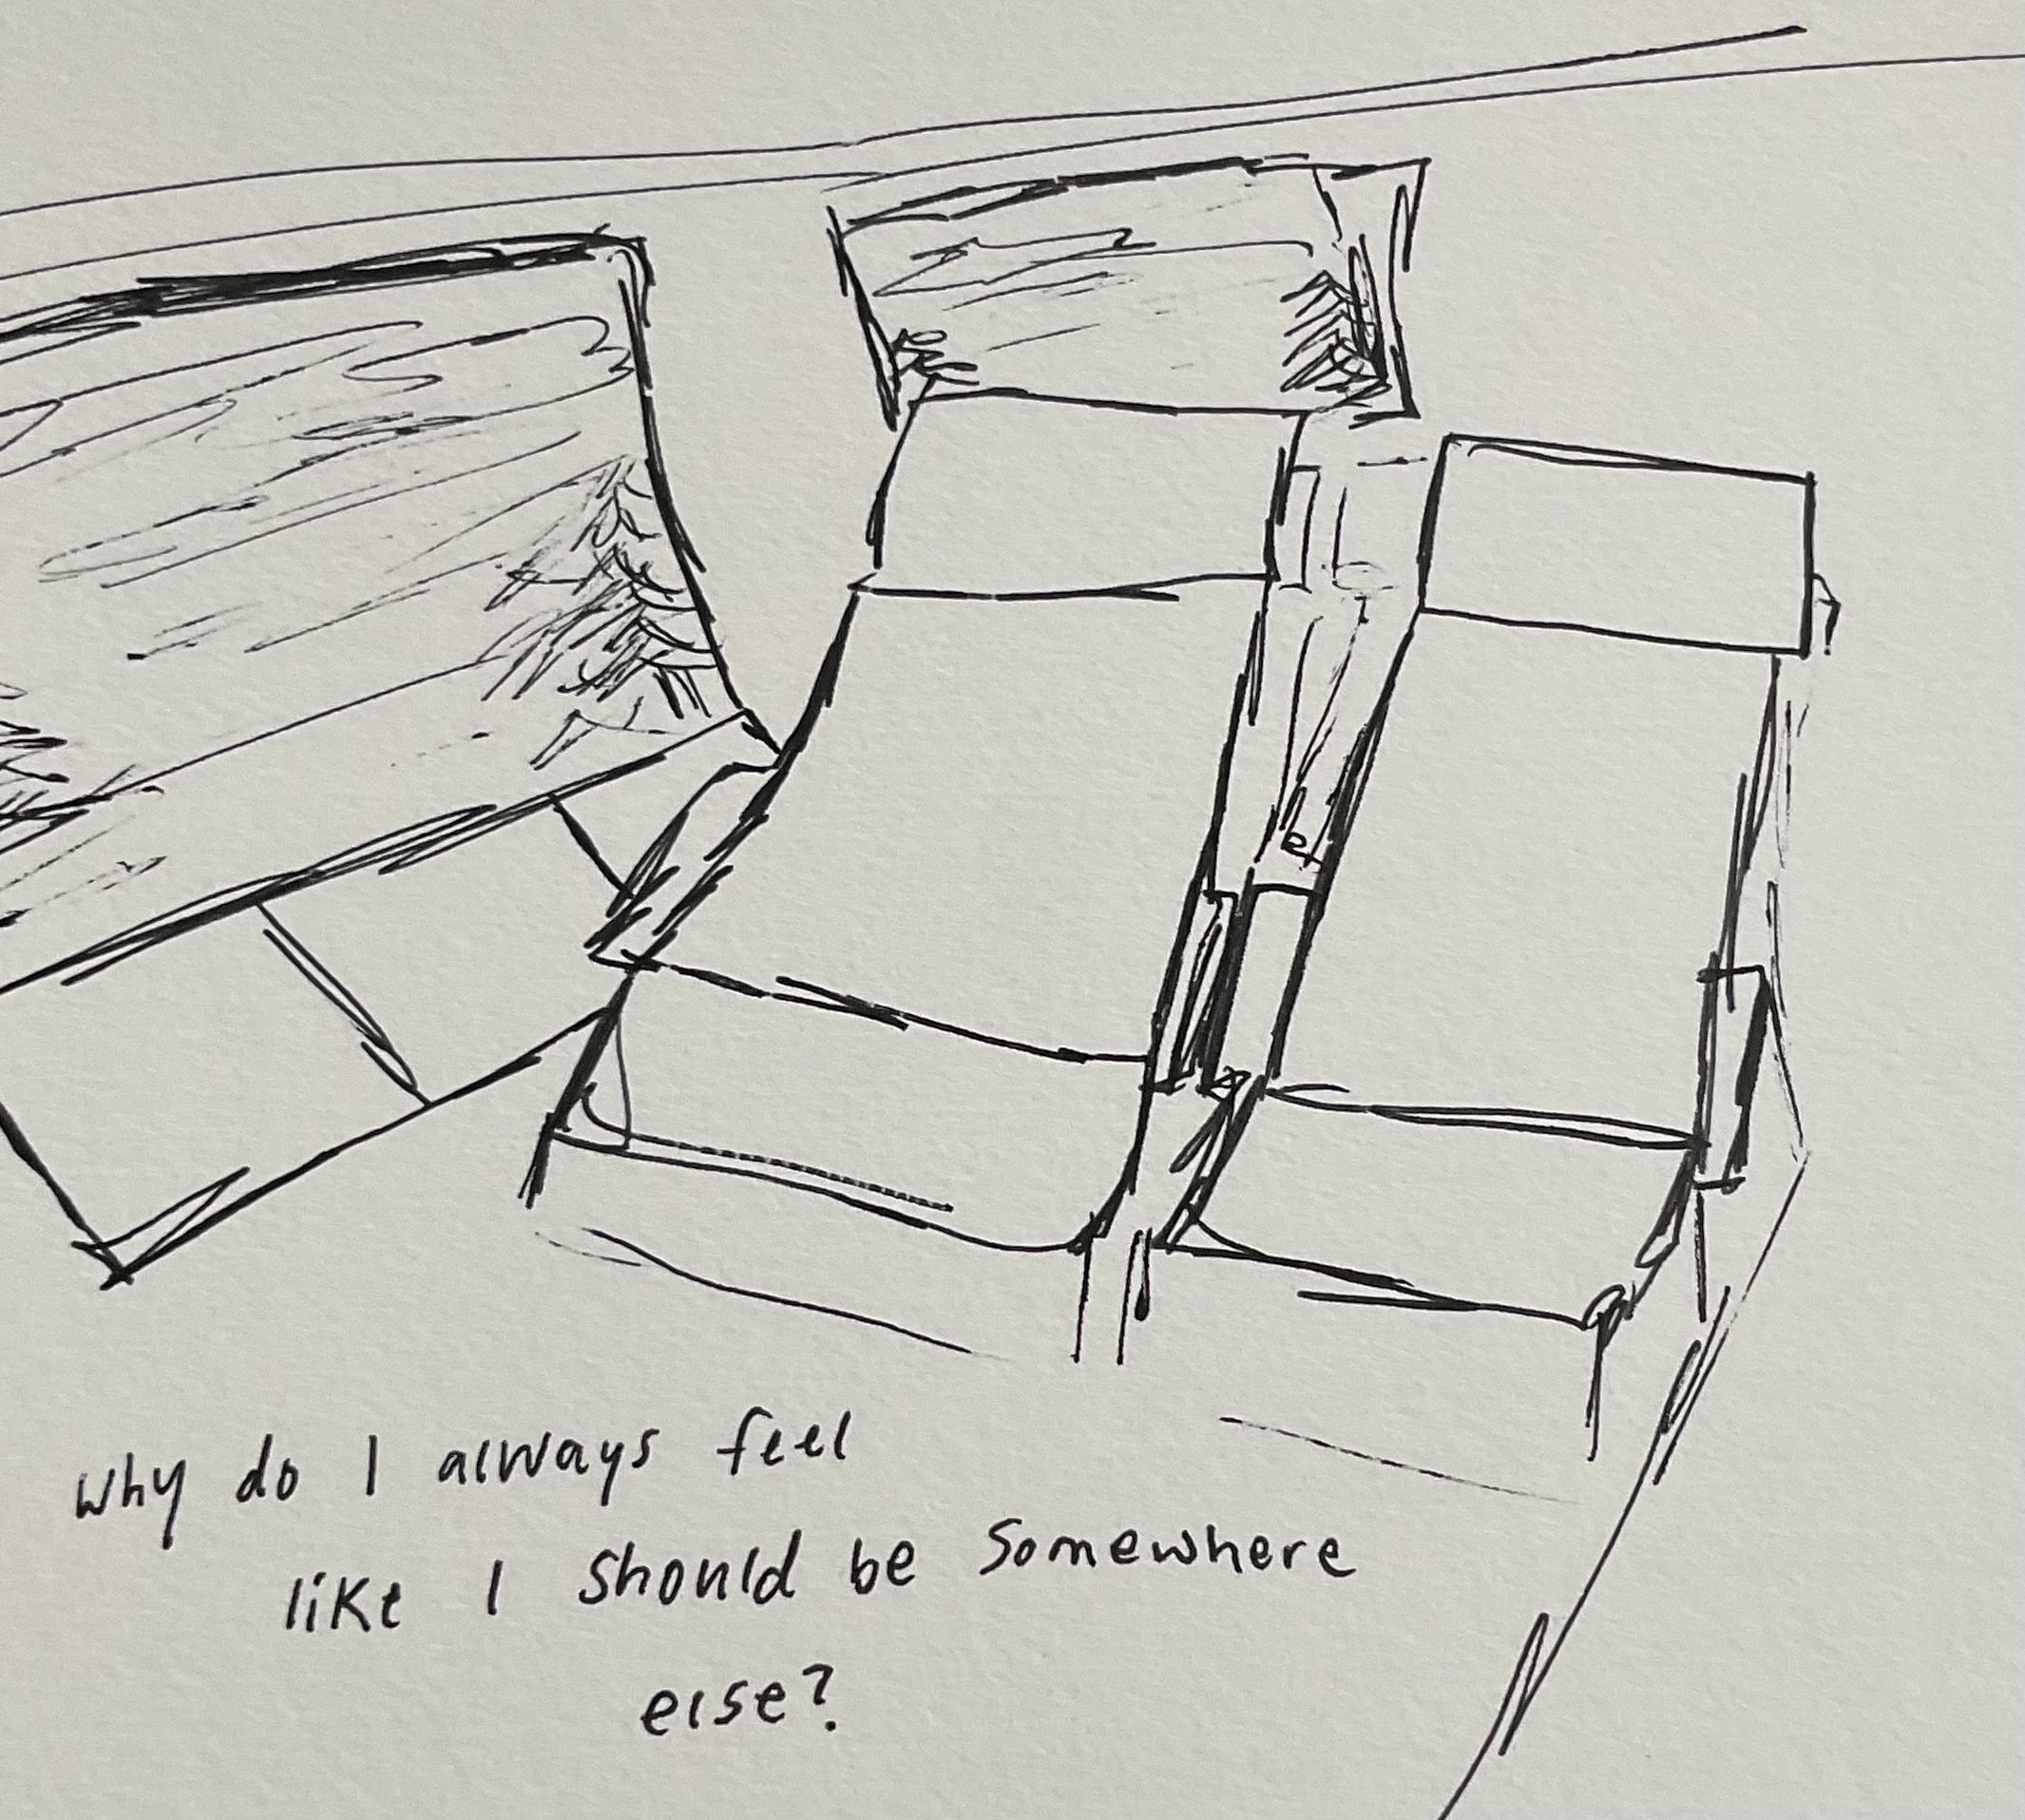 why do I always feel
like I should be somewhere
else?